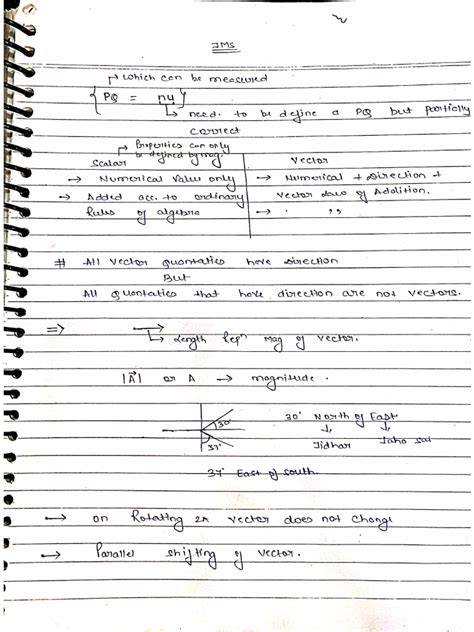 IMS
→ which can be measured
{ PQ = nu }
→ need. to be define a PQ but partially
correct
→ Properties can only
be defined by mag.
Scalar | Vector
→ Numerical value only | → Numerical + Direction +
→ Added acc. to ordinary | Vector laws of Addition.
Rules of algebra | → " "
# All vector quantaties have direction
But
All quantaties that have direction are not vectors.
⇒ →
→ Length repⁿ Mag of vector.
|A⃗| or A → magnitude.
30° 30° North of East
37° Jidhar Jaho sai
37° East of south.
→ on Rotating 2π vector does not change
→ Parallel shifting of vector.